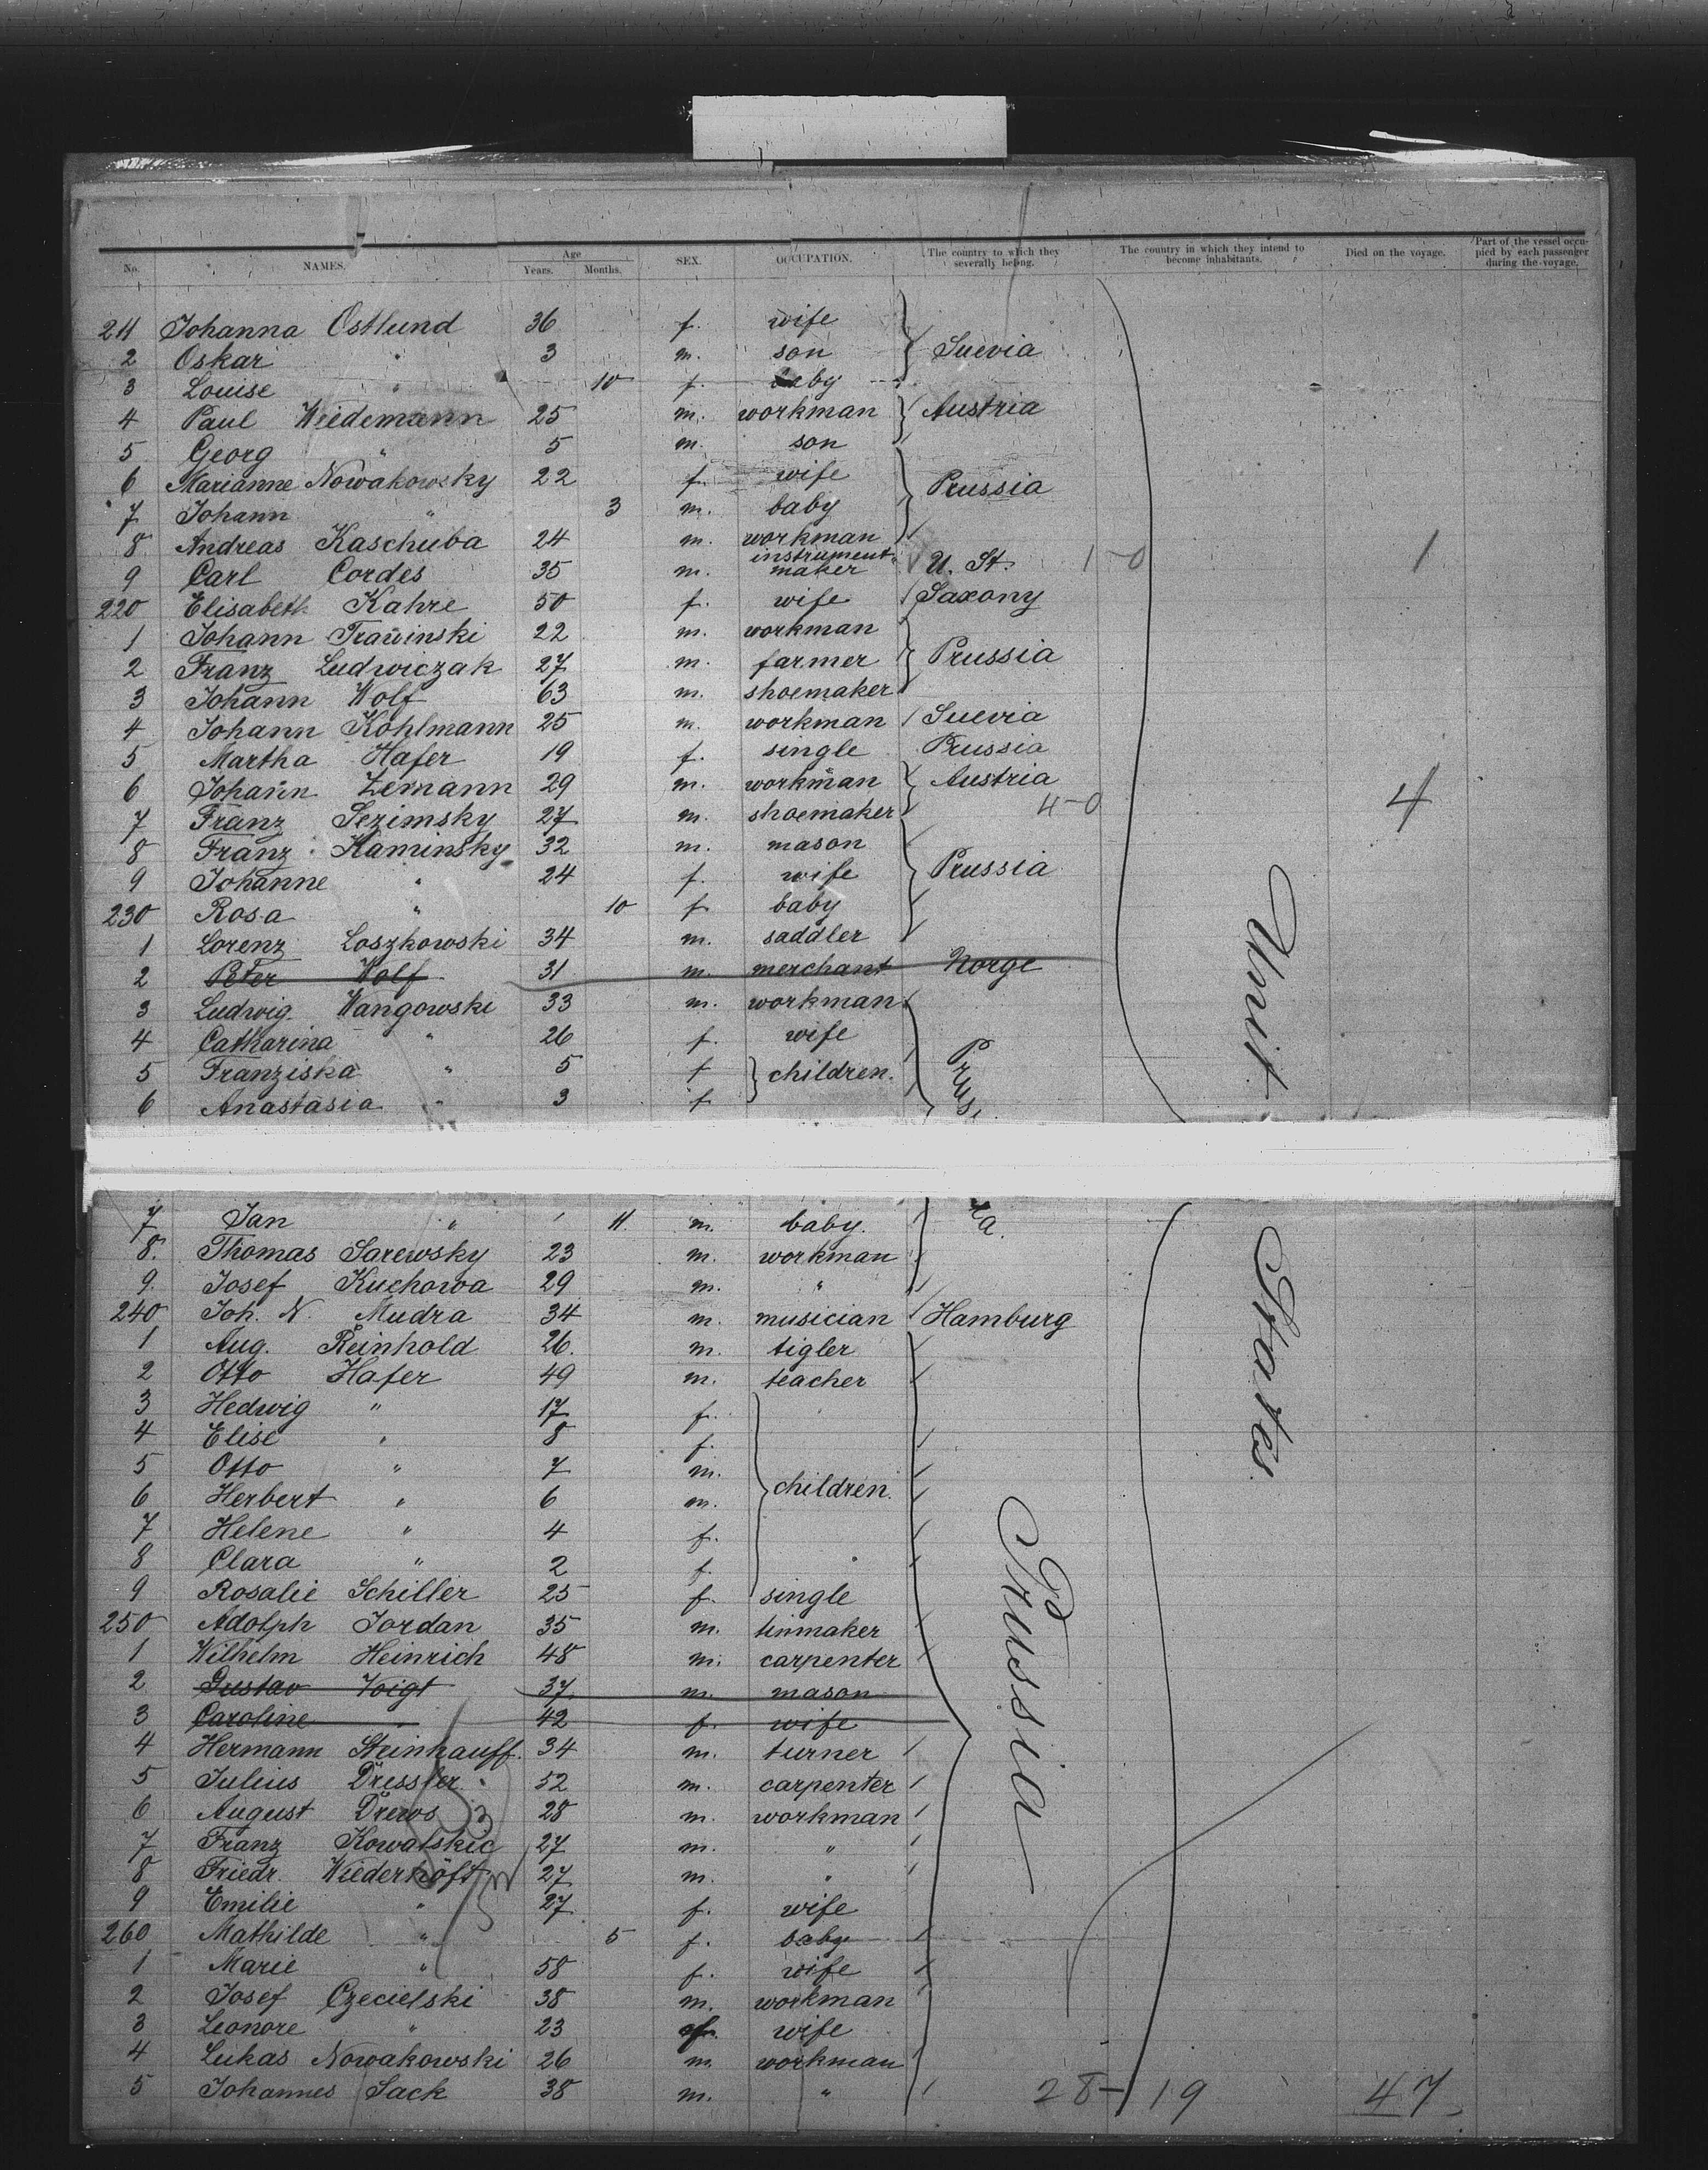 No. NAMES. Age Years. Months. SEX. OCCUPATION. The country to which they severally belong. The country in which they intend to become inhabitants. Died on the voyage. Part of the vessel occupied by each passenger during the voyage.
211 Johanna Ostlund 36 f. wife
2 Oskar " 3 m. son Suevia
3 Louise " 10 f. baby
4 Paul Wiedemann 25 m. workman Austria
5 Georg " 5 m. son
6 Marianne Nowakowsky 22 f. wife Prussia
7 Johann " 3 m. baby
8 Andreas Kaschuba 24 m. workman
9 Carl Cordes 35 m. instrument maker U. St. 1-0 1
220 Elisabeth Kahre 50 f. wife Saxony
1 Johann Trawinski 22 m. workman
2 Franz Ludwiczak 27 m. farmer Prussia
3 Johann Wolf 63 m. shoemaker
4 Johann Kohlmann 25 m. workman Suevia
5 Martha Hafer 19 f. single Prussia
6 Johann Zemann 29 m. workman Austria
7 Franz Sezimsky 27 m. shoemaker 4-0 4
8 Franz Kaminsky 32 m. mason
9 Johanne " 24 f. wife Prussia
230 Rosa " 10 f. baby
1 Lorenz Loszkowski 34 m. saddler
2 Peter Wolf 31 m. merchant Norge
3 Ludwig Wangowski 33 m. workman
4 Catharina " 26 f. wife
5 Franziska " 5 f children.
6 Anastasia " 3 f
Pruss
Unit
7 Jan " 11 m. baby.
ia.
8. Thomas Sarewsky 23 m. workman
9. Josef Kuchowa 29 m. "
240 Joh. N. Mudra 34 m. musician Hamburg
1 Aug. Reinhold 26. m. tigler
2 Otto Hafer 49 m. teacher
3 Hedwig " 17 f.
4 Elise " 8 f.
5 Otto " 7 m.
6 Herbert " 6 m. children.
7 Helene " 4 f.
8 Clara " 2 f.
9 Rosalie Schiller 25 f. single
250 Adolph Jordan 35 m. tinmaker
1 Wilhelm Heinrich 48 m. carpenter
2 Gustav Voigt 37 m. mason
3 Caroline " 42 f. wife
4 Hermann Steinhauff. 34 m. turner
5 Julius Dressler 52 m. carpenter
6 August Drews 28 m. workman
7 Franz Kowalskie 27 m. "
8 Friedr. Wiederhöft 27 m. "
9 Emilie " 27 f. wife
260 Mathilde " 5 f. baby
1 Marie " 58 f. wife
2 Josef Czecielski 38 m. workman
3 Leonore " 23 f. wife
4 Lukas Nowakowski 26 m. workman
5 Johannes Sack 38 m. " 28-19 47
Prussia
States